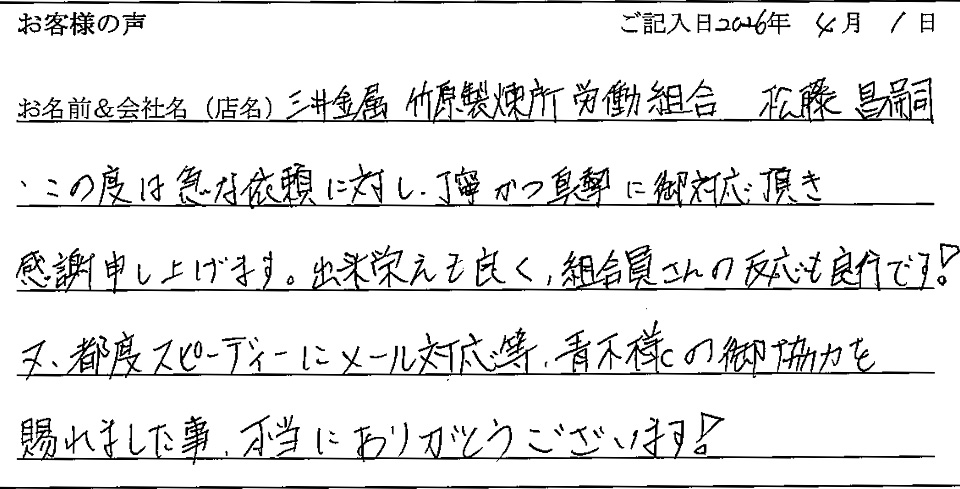 お客様の声 ご記入日2026年 4月 1日
お名前&会社名（店名）三井金属 竹原製煉所 労働組合 松藤 昌嗣
・この度は急な依頼に対し、丁寧かつ真摯に御対応頂き
感謝申し上げます。出来栄えも良く、組合員さんの反応も良行です!
又、都度スピーディーにメール対応等、青木様の御協力を
賜れました事、本当にありがとうございます!